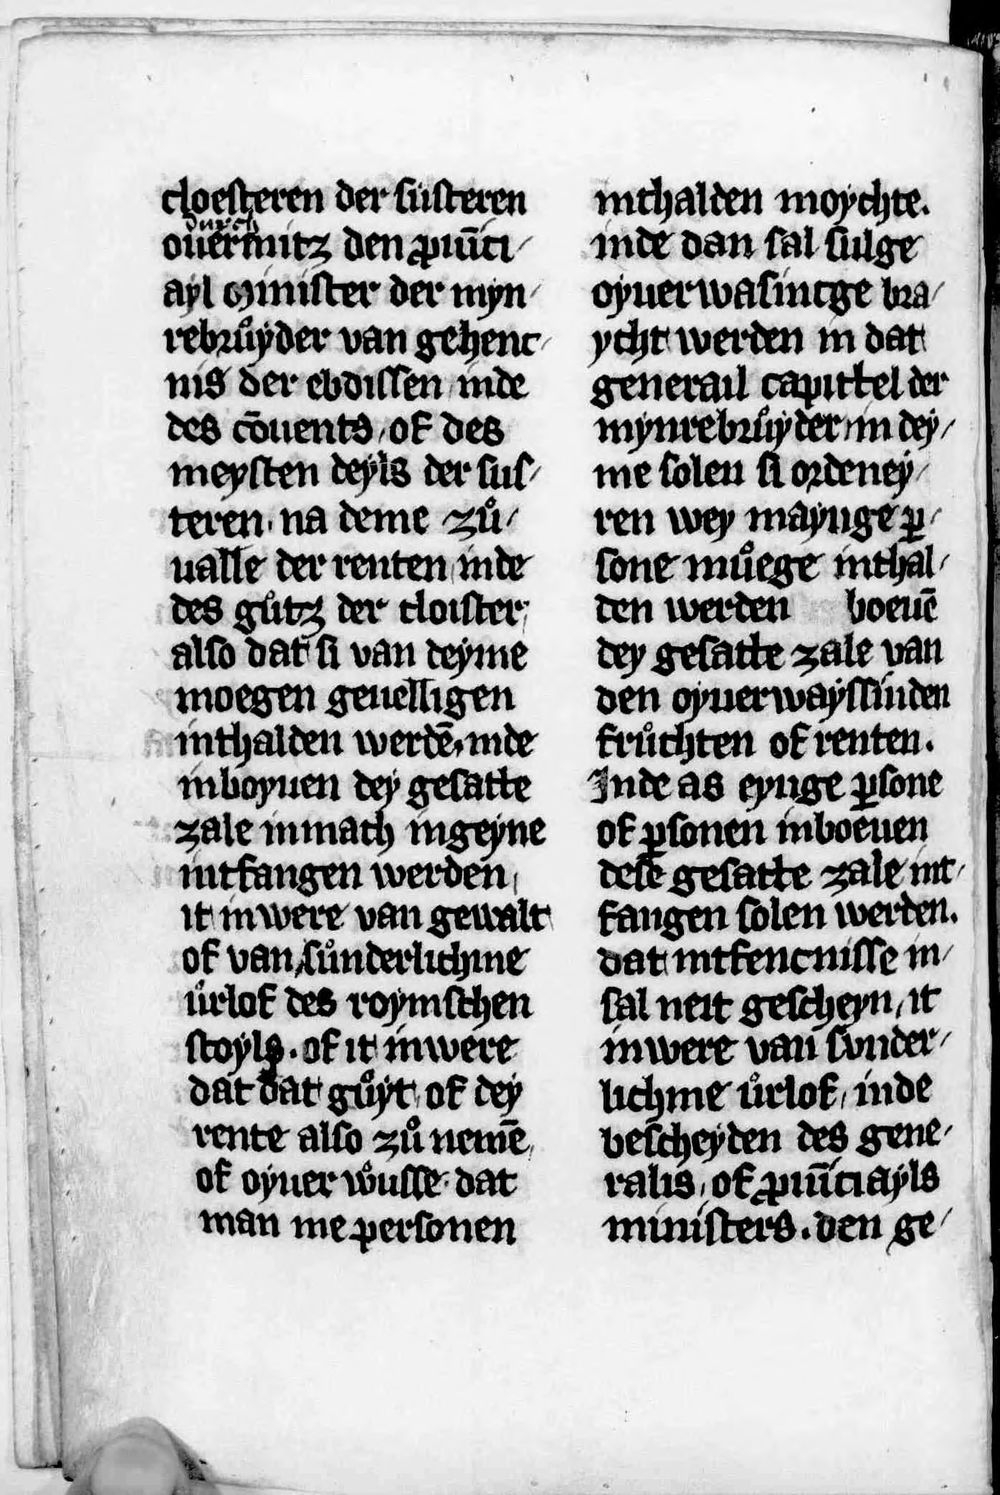 cloesteren der susteren
durch
ouermitz den ꝓuīci/
ayl minister der myn/
rebrůyder van gehenc/
nis der ebdissen inde
des cōuents, of des
meysten deyls der sus/
teren. na deme zů/
ualle der renten inde
des gůtz der cloister,
also dat si van deyme
moegen geuelligen
inthalden werdē, inde
inboyuen dey gesatte
zale inmach ingeyne
intfangen werden,
it inwere van gewalt
of van sůnderlichme
ůrlof des roymschen
stoyls. of it inwere
dat dat gůyt of dey
rente also zů nemē,
of oyuer wůsse. dat
man me personen
inthalden moychte.
inde dan sal sulge
oyuerwasincge bra/
ycht werden in dat
generail capittel der
mynrebrůyder, in dey/
me solen si ordeney/
ren wey mayuge ꝑ/
sone můege inthal/
den werden boeuē
dey gesatte zale van
den oyuerwayssinden
frůchten of renten.
Inde as eynge ꝑsone
of ꝑsonen inboeuen
dese gesatte zale int/
fangen solen werden.
dat intfencnisse in/
sal neit gescheyn, it
inwere van sunder/
lichme ůrlof, inde
bescheyden des gene/
ralis, of ꝓuīciayls
ministers. den ge/